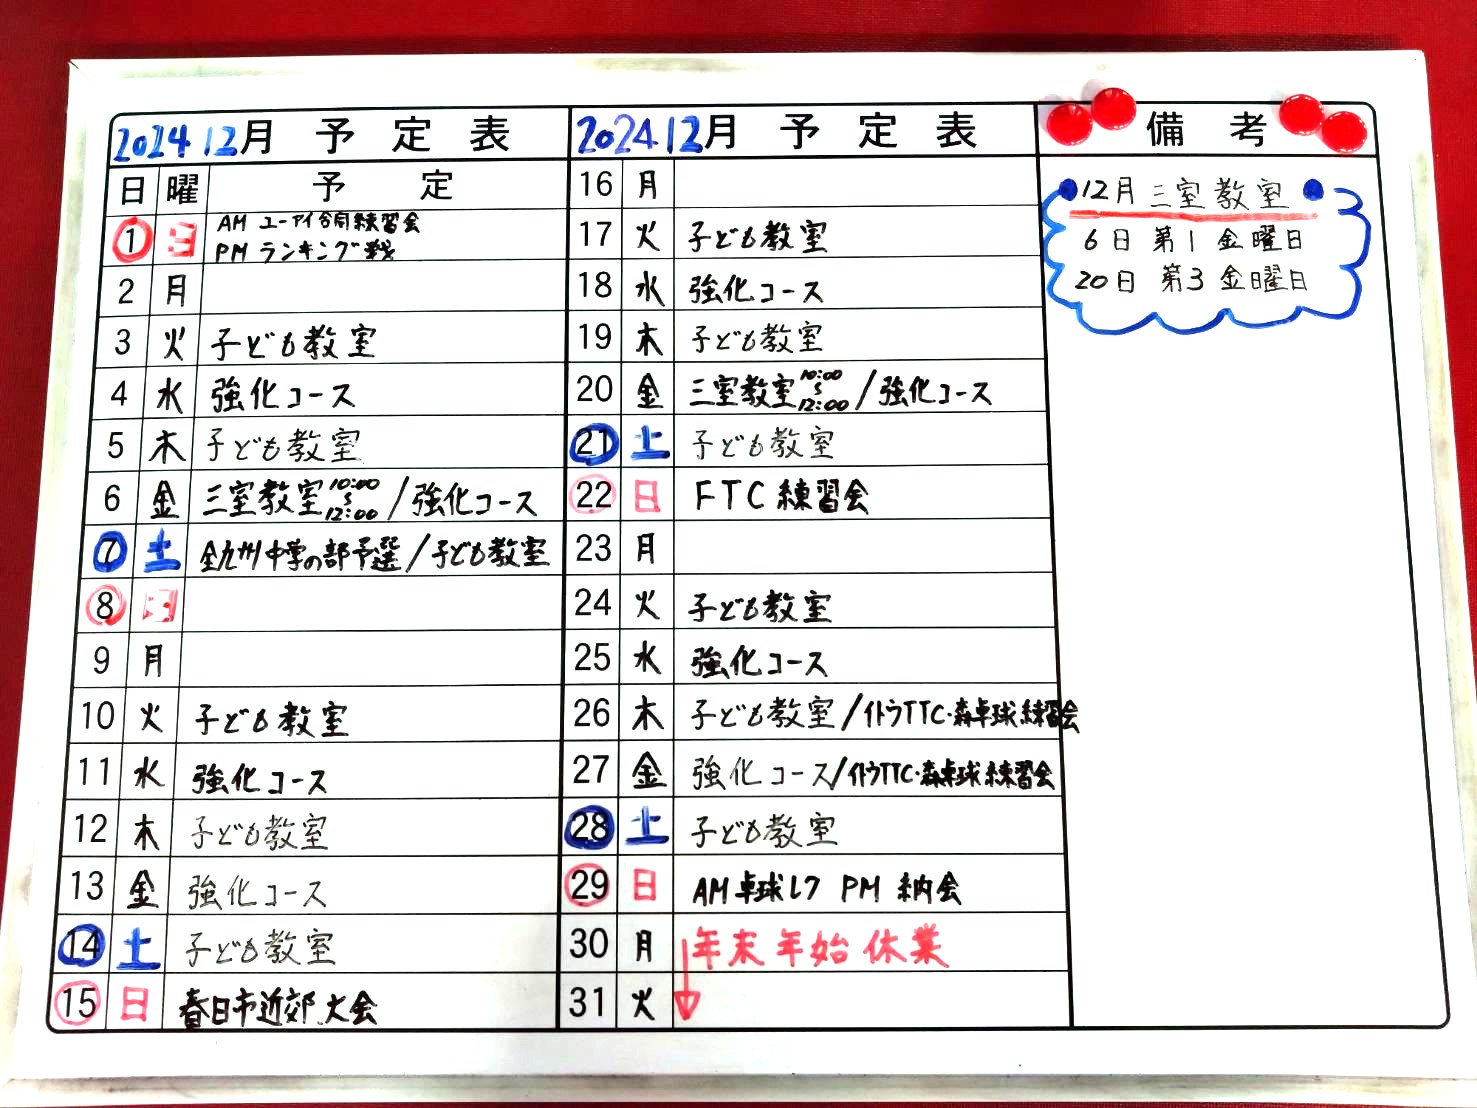 2024 12月 予定表
日 曜 予定
1 日 AM ユーアイ合同練習会
PM ランキング戦
2 月
3 火 子ども教室
4 水 強化コース
5 木 子ども教室
6 金 三室教室 10:00〜12:00 / 強化コース
7 土 全九州中学の部予選 / 子ども教室
8 日
9 月
10 火 子ども教室
11 水 強化コース
12 木 子ども教室
13 金 強化コース
14 土 子ども教室
15 日 春日市近郊大会
2024.12月 予定表
16 月
17 火 子ども教室
18 水 強化コース
19 木 子ども教室
20 金 三室教室 10:00〜12:00 / 強化コース
21 土 子ども教室
22 日 FTC 練習会
23 月
24 火 子ども教室
25 水 強化コース
26 木 子ども教室 / イトウTTC・森卓球練習会
27 金 強化コース / イトウTTC・森卓球練習会
28 土 子ども教室
29 日 AM 卓球レク PM 納会
30 月 年末年始休業
31 火
備考
12月 三室教室
6日 第1金曜日
20日 第3金曜日